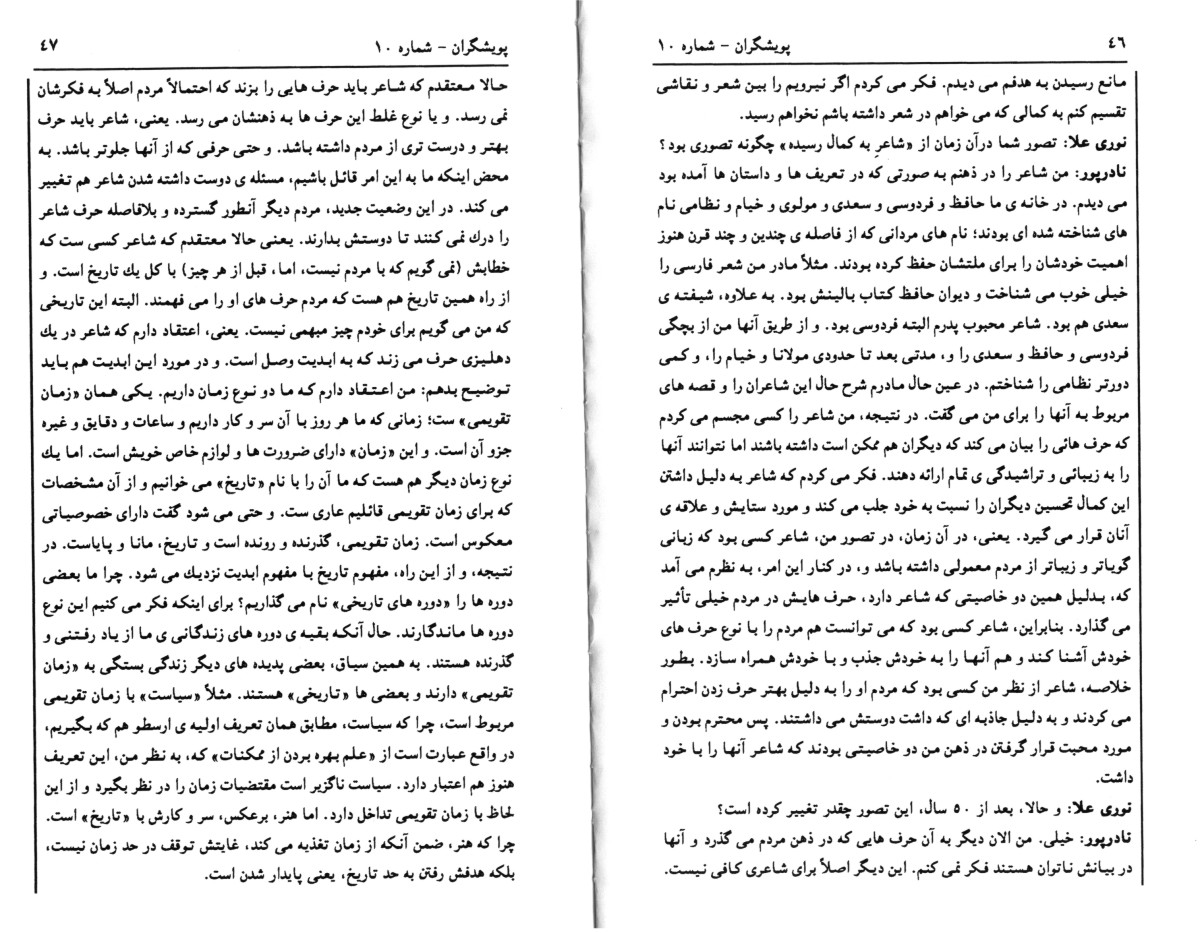 ٤٦ پویشگران - شماره ١٠
مانع رسیدن به هدفم می دیدم. فکر می کردم اگر نیرویم را بین شعر و نقاشی
تقسیم کنم به کمالی که می خواهم در شعر داشته باشم نخواهم رسید.
نوری علا: تصور شما درآن زمان از «شاعرِ به کمال رسیده» چگونه تصوری بود؟
نادرپور: من شاعر را در ذهنم به صورتی که در تعریف ها و داستان ها آمده بود
می دیدم. در خانه ی ما حافظ و فردوسی و سعدی و مولوی و خیام و نظامی نام
های شناخته شده ای بودند؛ نام های مردانی که از فاصله ی چندین و چند قرن هنوز
اهمیت خودشان را برای ملتشان حفظ کرده بودند. مثلاً مادر من شعر فارسی را
خیلی خوب می شناخت و دیوان حافظ کتاب بالینش بود. به علاوه، شیفته ی
سعدی هم بود. شاعر محبوب پدرم البته فردوسی بود. و از طریق آنها من از بچگی
فردوسی و حافظ و سعدی را و، مدتی بعد تا حدودی مولانا و خیام را، و کمی
دورتر نظامی را شناختم. در عین حال مادرم شرح حال این شاعران را و قصه های
مربوط به آنها را برای من می گفت. در نتیجه، من شاعر را کسی مجسم می کردم
که حرف هائی را بیان می کند که دیگران هم ممکن است داشته باشند اما نتوانند آنها
را به زیبائی و تراشیدگی ی تمام ارائه دهند. فکر می کردم که شاعر به دلیل داشتن
این کمال تحسین دیگران را نسبت به خود جلب می کند و مورد ستایش و علاقه ی
آنان قرار می گیرد. یعنی، در آن زمان، در تصور من، شاعر کسی بود که زبانی
گویاتر و زیباتر از مردم معمولی داشته باشد و، در کنار این امر، به نظرم می آمد
که، بدلیل همین دو خاصیتی که شاعر دارد، حرف هایش در مردم خیلی تأثیر
می گذارد. بنابراین، شاعر کسی بود که می توانست هم مردم را با نوع حرف های
خودش آشنا کند و هم آنها را به خودش جذب و با خودش همراه سازد. بطور
خلاصه، شاعر از نظر من کسی بود که مردم او را به دلیل بهتر حرف زدن احترام
می کردند و به دلیل جاذبه ای که داشت دوستش می داشتند. پس محترم بودن و
مورد محبت قرار گرفتن در ذهن من دو خاصیتی بودند که شاعر آنها را با خود
داشت.
نوری علا: و حالا، بعد از ٥٠ سال، این تصور چقدر تغییر کرده است؟
نادرپور: خیلی. من الان دیگر به آن حرف هایی که در ذهن مردم می گذرد و آنها
در بیانش ناتوان هستند فکر نمی کنم. این دیگر اصلاً برای شاعری کافی نیست.
پویشگران - شماره ١٠ ٤٧
حالا معتقدم که شاعر باید حرف هایی را بزند که احتمالاً مردم اصلاً به فکرشان
نمی رسد. و یا نوع غلط این حرف ها به ذهنشان می رسد. یعنی، شاعر باید حرف
بهتر و درست تری از مردم داشته باشد. و حتی حرفی که از آنها جلوتر باشد. به
محض اینکه ما به این امر قائل باشیم، مسئله ی دوست داشته شدن شاعر هم تغییر
می کند. در این وضعیت جدید، مردم دیگر آنطور گسترده و بلافاصله حرف شاعر
را درك نمی کنند تا دوستش بدارند. یعنی حالا معتقدم که شاعر کسی ست که
خطابش (نمی گویم که با مردم نیست، اما، قبل از هر چیز) با کل یك تاریخ است. و
از راه همین تاریخ هم هست که مردم حرف های او را می فهمند. البته این تاریخی
که من می گویم برای خودم چیز مبهمی نیست. یعنی، اعتقاد دارم که شاعر در یك
دهلیزی حرف می زند که به ابدیت وصل است. و در مورد این ابدیت هم باید
توضیح بدهم: من اعتقاد دارم که ما دو نوع زمان داریم. یکی همان «زمان
تقویمی» ست؛ زمانی که ما هر روز با آن سر و کار داریم و ساعات و دقایق و غیره
جزو آن است. و این «زمان» دارای ضرورت ها و لوازم خاص خویش است. اما یك
نوع زمان دیگر هم هست که ما آن را با نام «تاریخ» می خوانیم و از آن مشخصات
که برای زمان تقویمی قائلیم عاری ست. و حتی می شود گفت دارای خصوصیاتی
معکوس است. زمان تقویمی، گذرنده و رونده است و تاریخ، مانا و پایاست. در
نتیجه، و از این راه، مفهوم تاریخ با مفهوم ابدیت نزدیك می شود. چرا ما بعضی
دوره ها را «دوره های تاریخی» نام می گذاریم؟ برای اینکه فکر می کنیم این نوع
دوره ها ماندگارند. حال آنکه بقیه ی دوره های زندگانی ی ما از یاد رفتنی و
گذرنده هستند. به همین سیاق، بعضی پدیده های دیگر زندگی بستگی به «زمان
تقویمی» دارند و بعضی ها «تاریخی» هستند. مثلاً «سیاست» با زمان تقویمی
مربوط است، چرا که سیاست، مطابق همان تعریف اولیه ی ارسطو هم که بگیریم،
در واقع عبارت است از «علم بهره بردن از ممکنات» که، به نظر من، این تعریف
هنوز هم اعتبار دارد. سیاست ناگزیر است مقتضیات زمان را در نظر بگیرد و از این
لحاظ با زمان تقویمی تداخل دارد. اما هنر، برعکس، سر و کارش با «تاریخ» است.
چرا که هنر، ضمن آنکه از زمان تغذیه می کند، غایتش توقف در حد زمان نیست،
بلکه هدفش رفتن به حد تاریخ، یعنی پایدار شدن است.